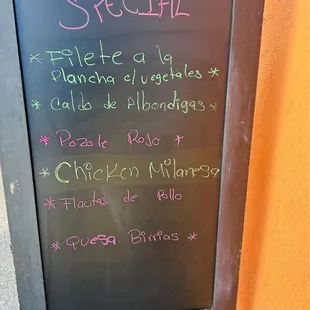 SPECIAL
* Filete a la
Plancha c/vegetales *
* Caldo de Albondigas *
* Pozole Rojo *
* Chicken Milanesa
* Flautas de Pollo
* Quesa Birrias *